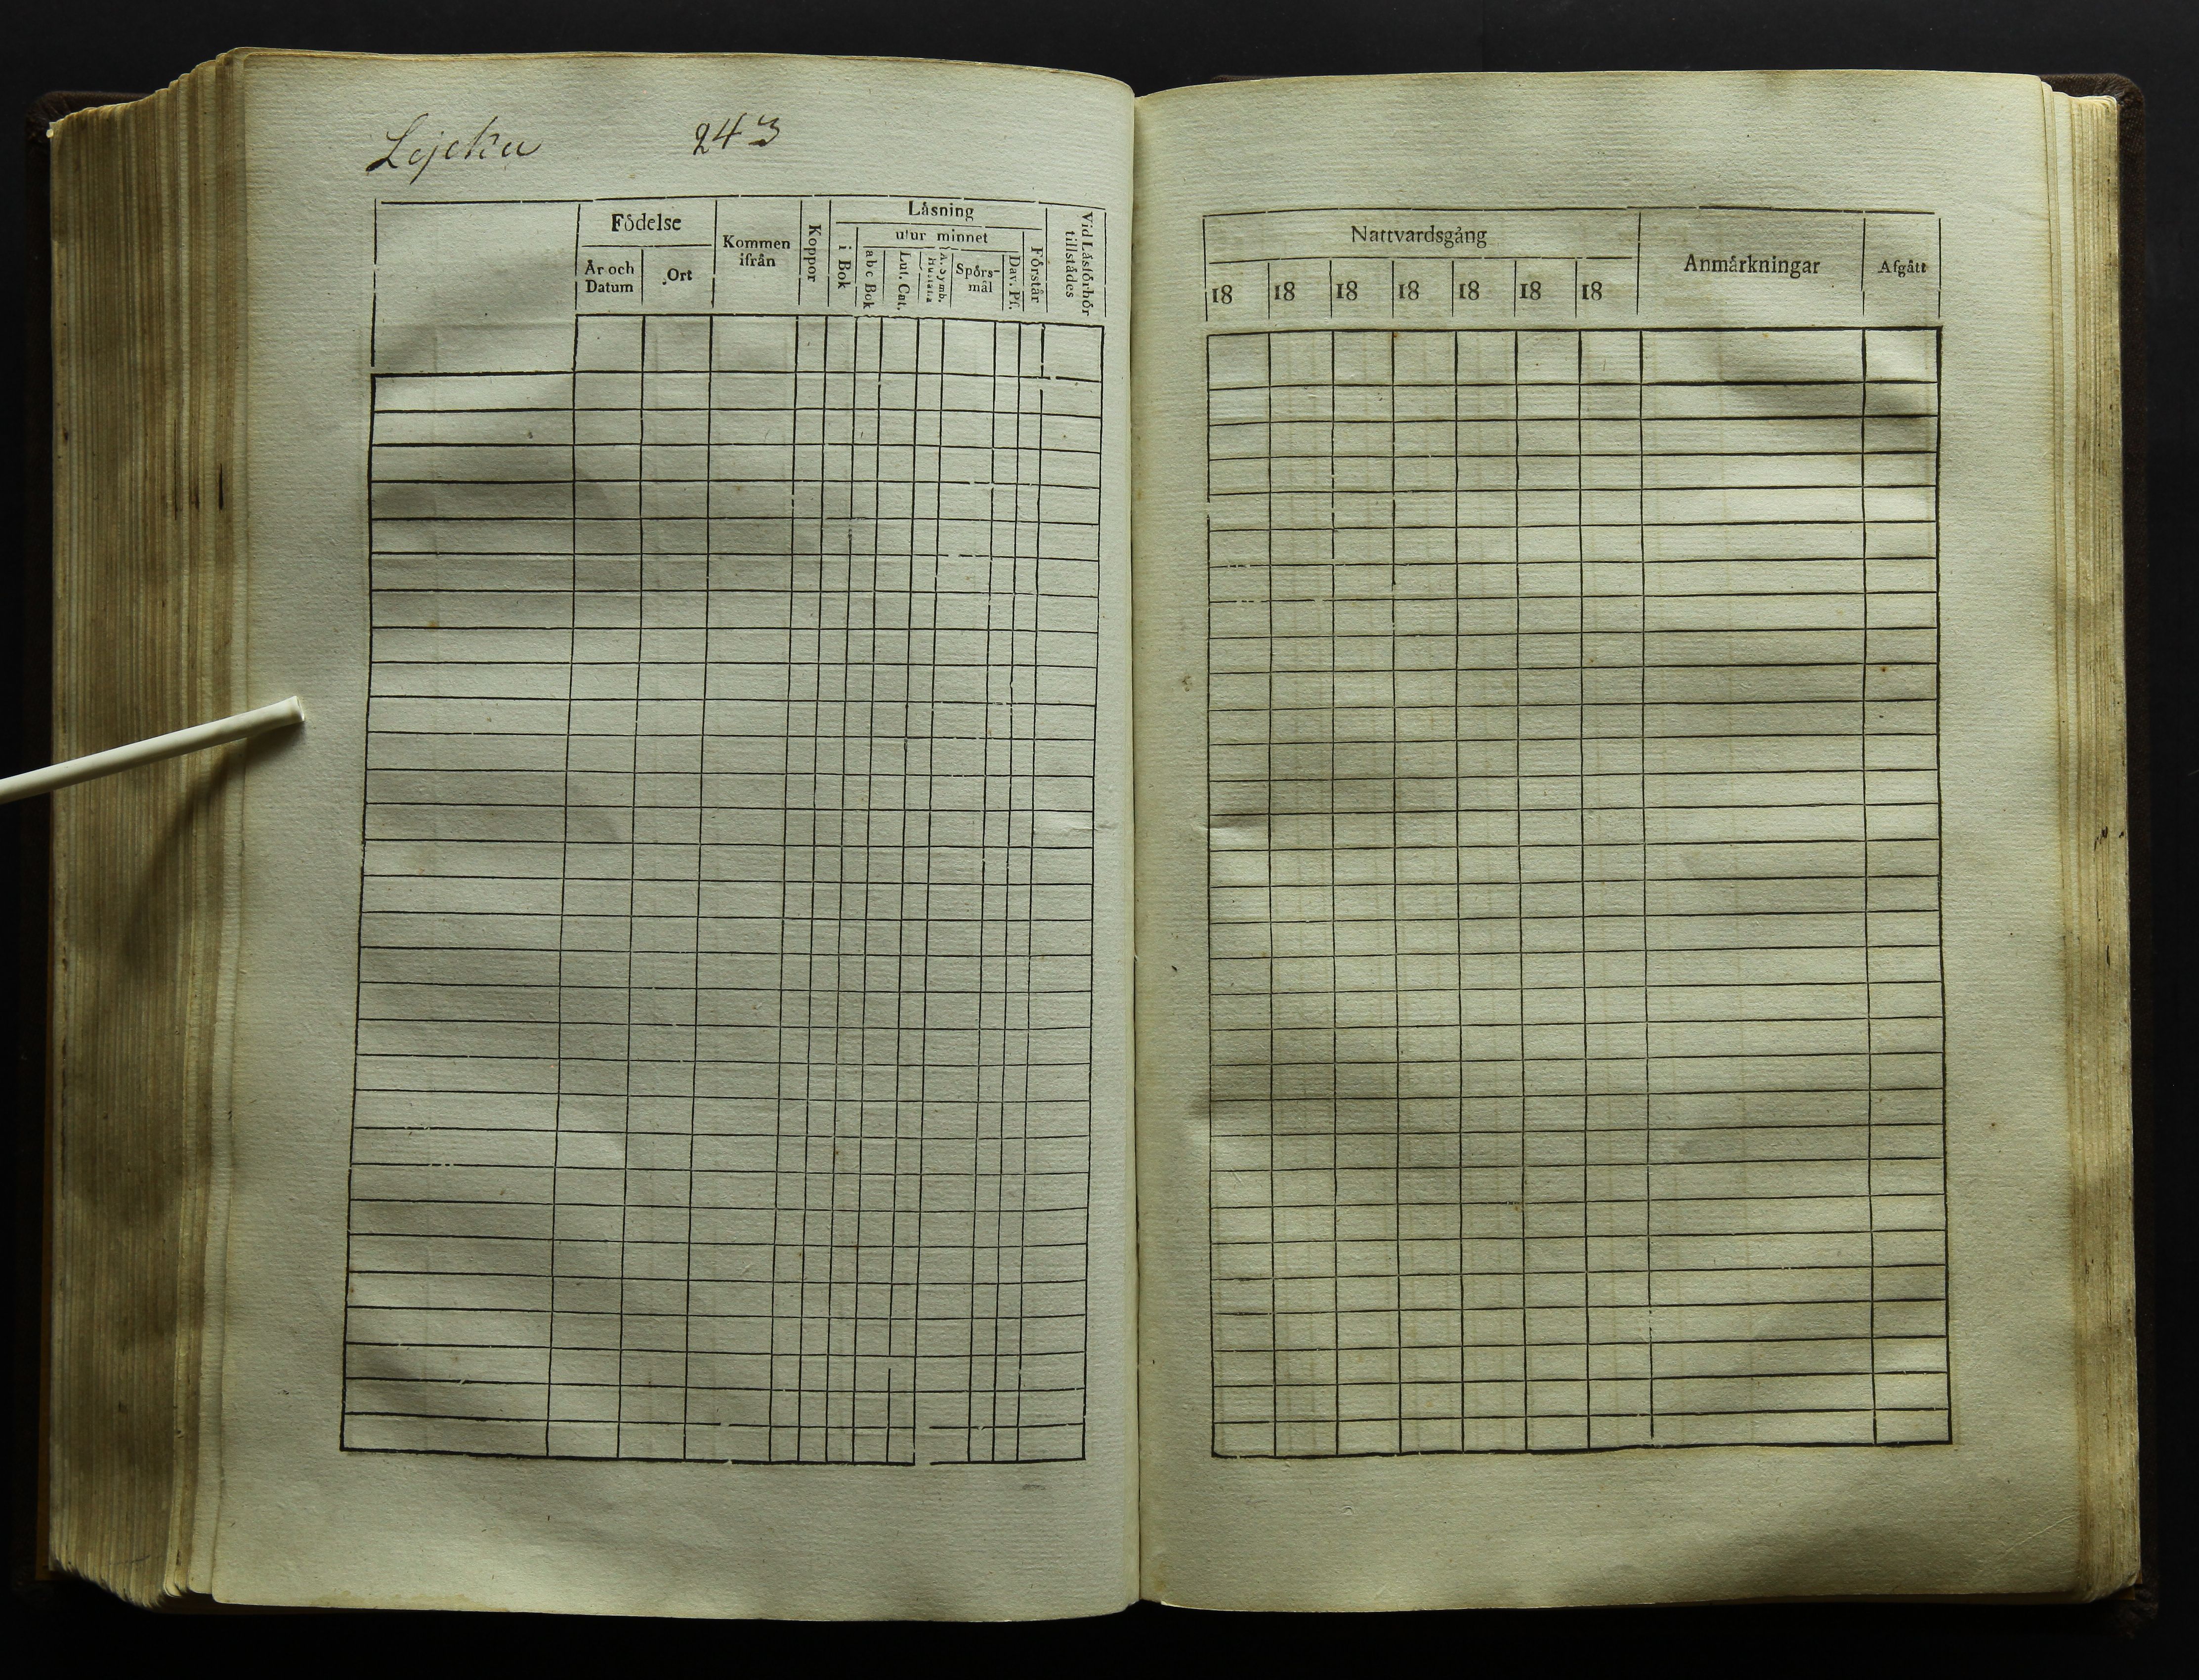 Lejeku 243
Födelse
År och Datum
Ort
Kommen ifrån
Koppor
Läsning
i Bok
utur minnet
abc Bok
Lut. Cat.
A. Symb.
Hustafla
Spörs-
mål
Dav. Ps.
Förstår
Vid Läsförhör
tillstådes
Nattvardsgång
18 18 18 18 18 18 18
Anmärkningar
Afgått